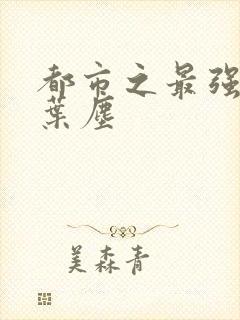 都市之最强
葉塵
美森青